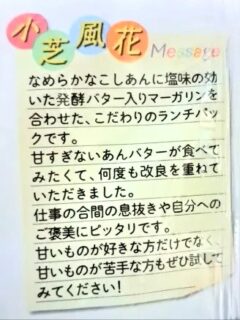 小芝風花
Message
なめらかなこしあんに塩味の効
いた発酵バター入りマーガリンを
合わせた、こだわりのランチパッ
クです。
甘すぎないあんバターが食べて
みたくて、何度も改良を重ねて
いただきました。
仕事の合間の息抜きや自分への
ご褒美にピッタリです。
甘いものが好きな方だけでなく、
甘いものが苦手な方もぜひ試して
みてください！